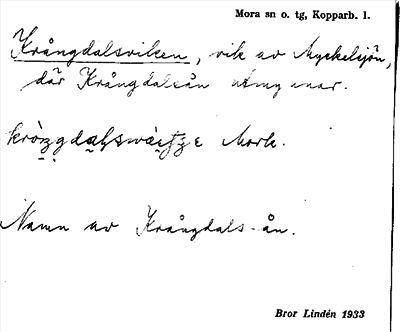 Mora sn o. tg, Kopparb. l.
Krångdalsviken, vik av Myckelsjön,
där Krångdalsån utmynnar.
Mork.
Namn av Krångdals-ån.
Bror Lindén 1933